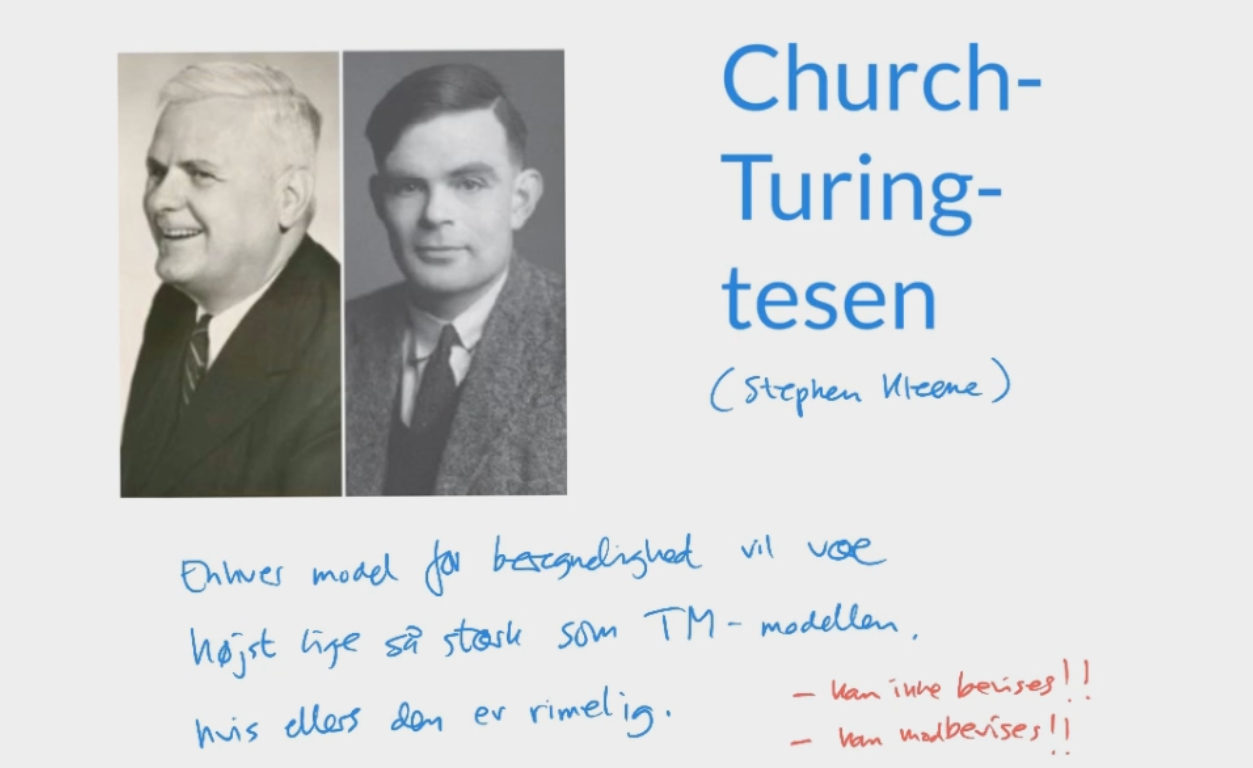 Church-
Turing-
tesen
(Stephen Kleene)
Enhver model for beregnelighed vil være
højst lige så stærk som TM-modellen,
hvis ellers den er rimelig.
- kan ikke bevises!!
- kan modbevises!!